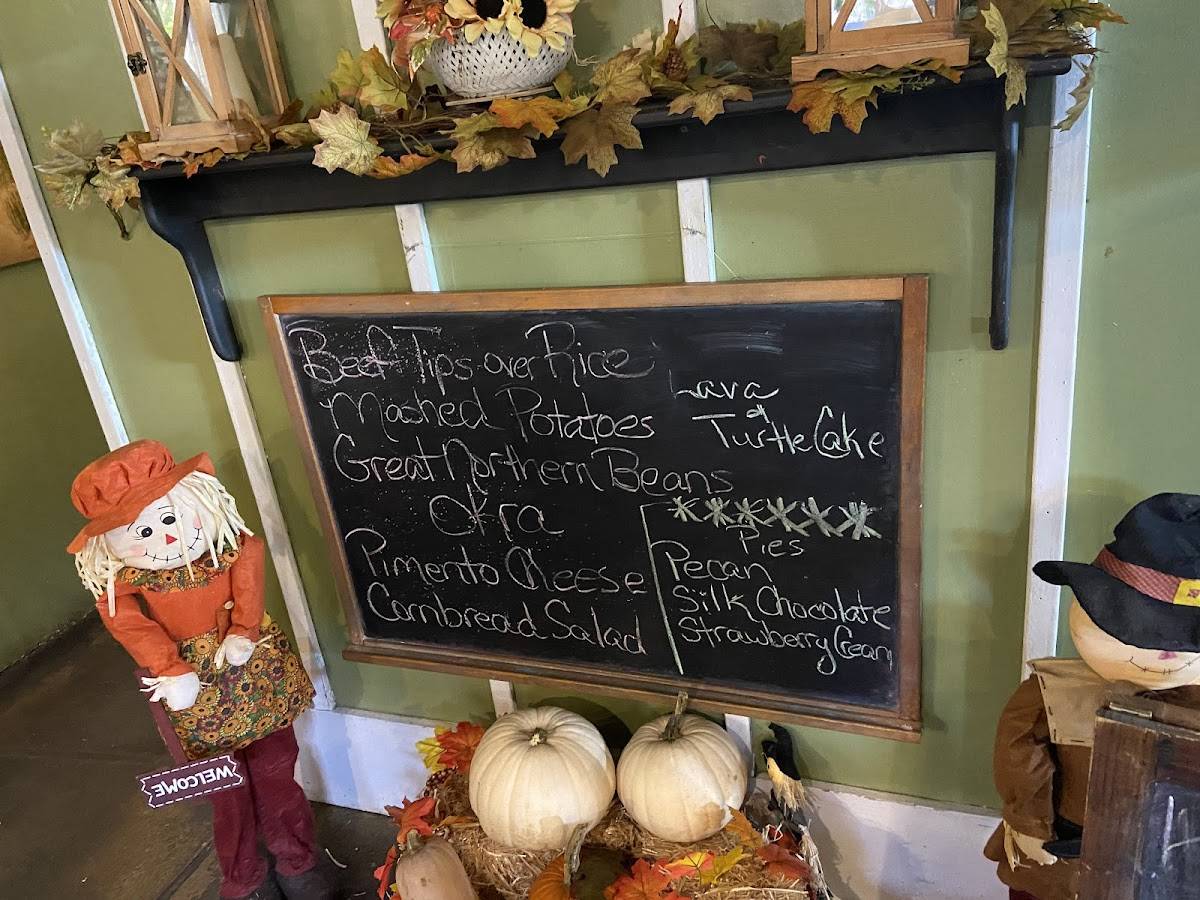 Beef Tips over Rice
Mashed Potatoes
Great Northern Beans
Okra
Pimento Cheese
Cornbread Salad
Lava
&
Turtle Cake
xxxxxx
Pies
Pecan
Silk Chocolate
Strawberry Cream
WELCOME